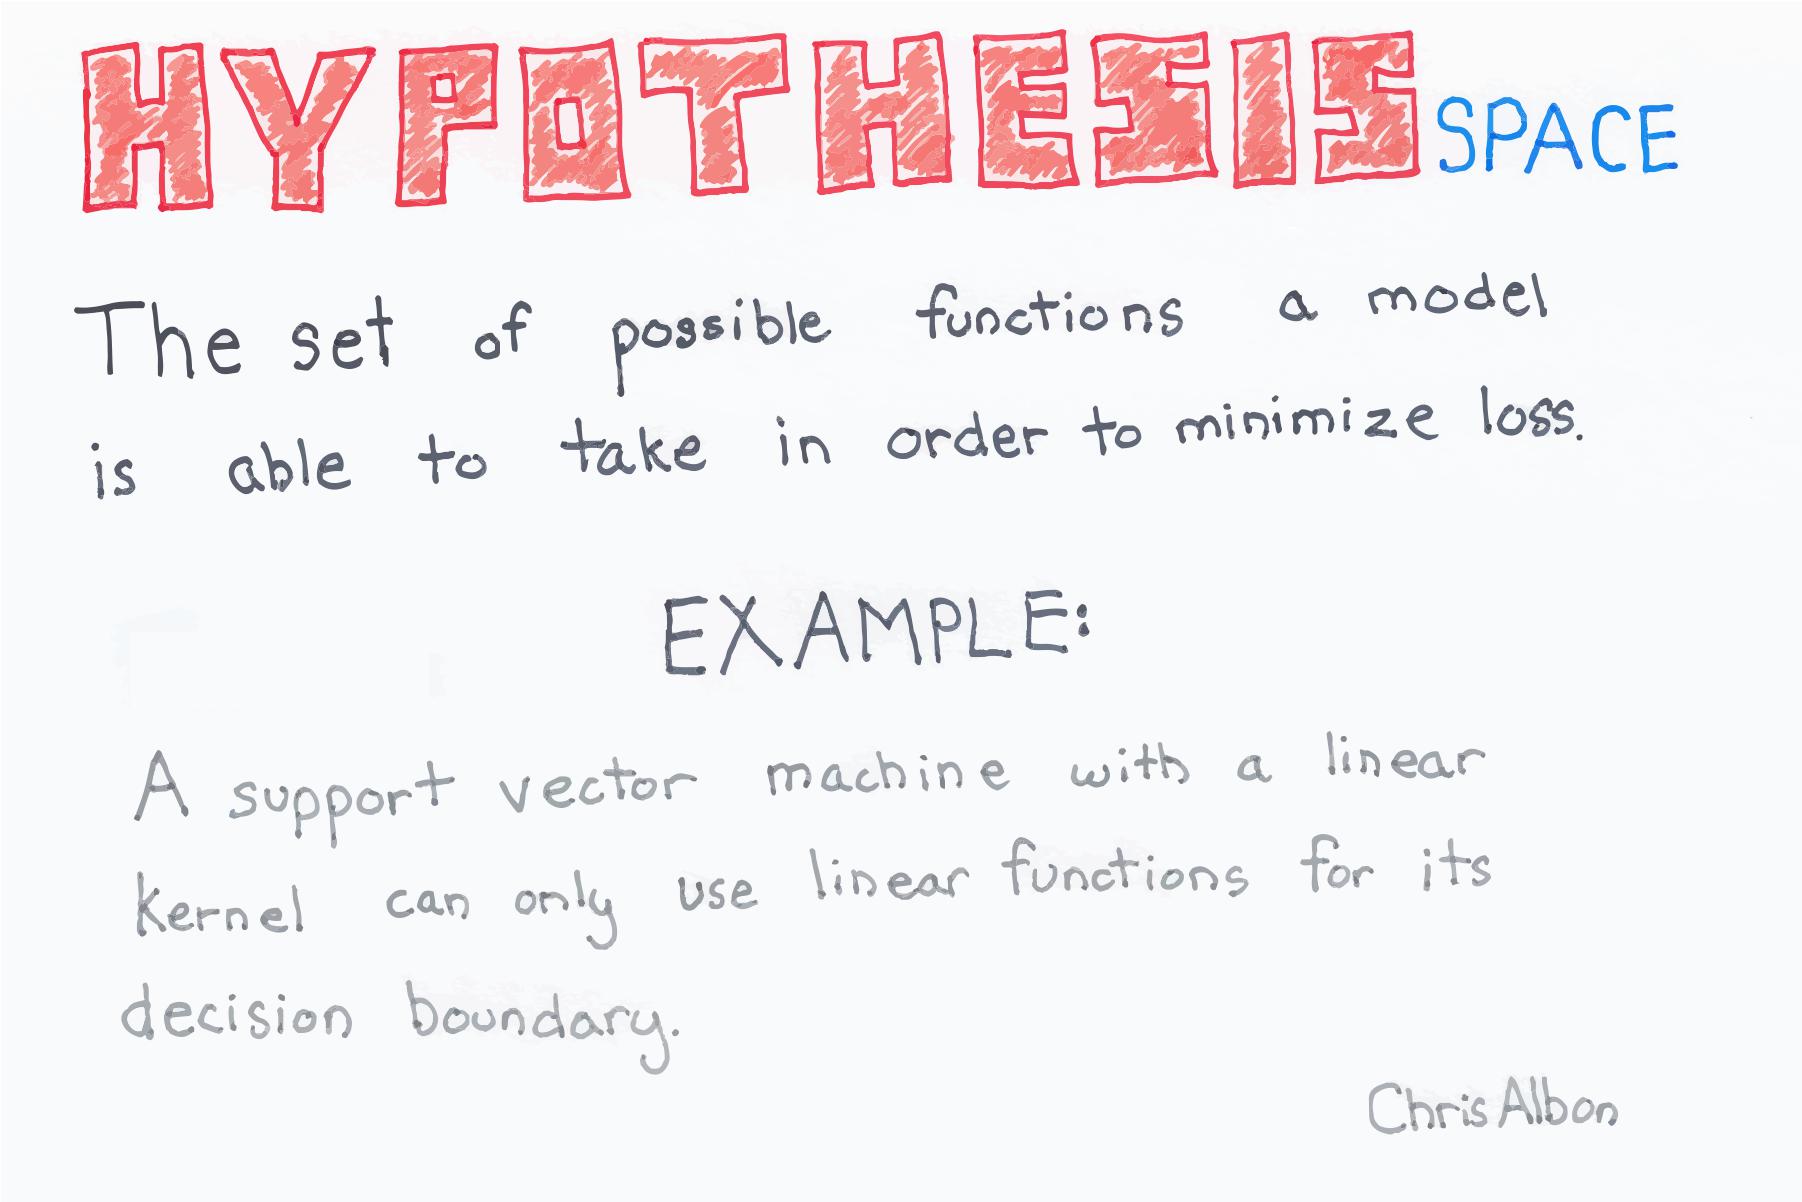 HYPOTHESIS SPACE
The set of possible functions a model
is able to take in order to minimize loss.
EXAMPLE:
A support vector machine with a linear
kernel can only use linear functions for its
decision boundary.
Chris Albon